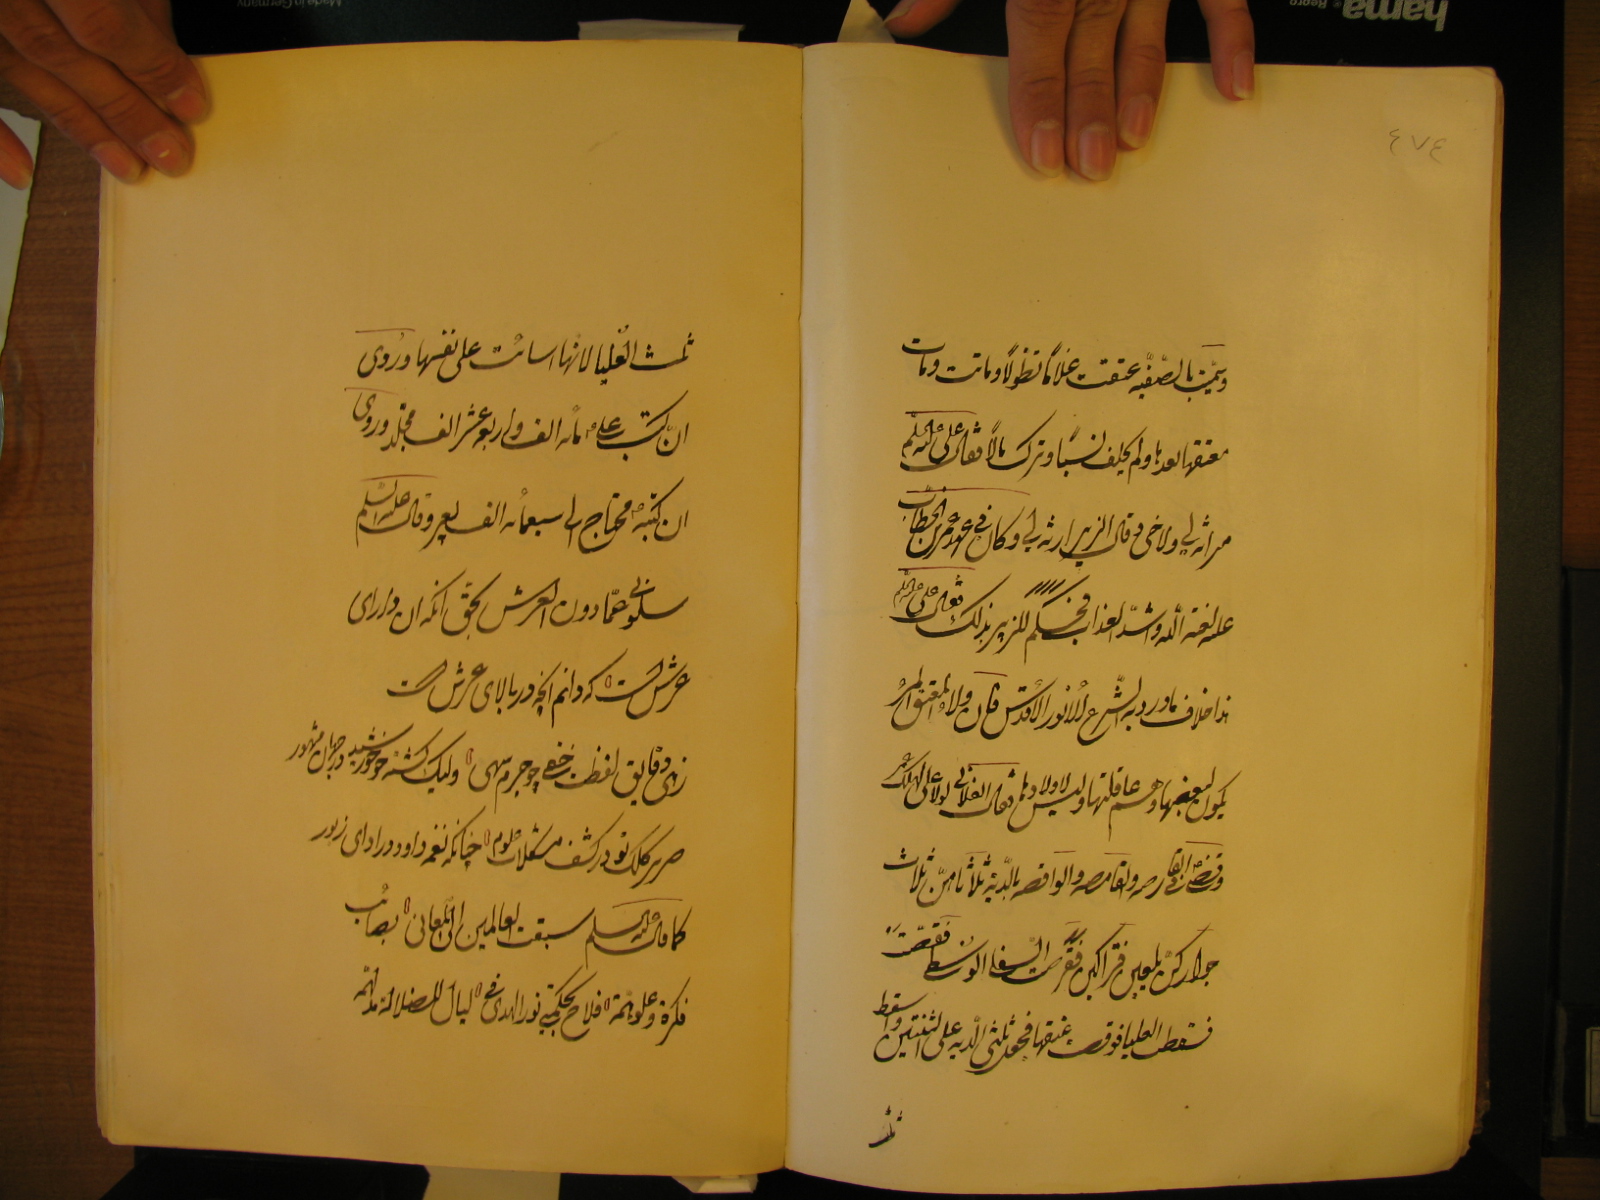 ٤٧٤
وسميت بالصفيه عتقت غلاماً وماتت ومات
معتقها بعدها ولم يخلف نسباً وترك مالاً فقال على عليه السلم
ميراثه لى ولاخى و قال الزبير ارثه لى وكان فى عهد عمر بن الخطاب
عليه لعنة الله واشد العذاب فحكم للزبير بذلك فقال على عليه السلم
هذا خلاف ما ورد به الشرع الانور الاقدس فان ولاء المعتق
يكون لبعضها وهم عاقلتها وليس لاولادها فقال لولا على لهلك عمر
وقضى فى القارصه والقامصه والواقصه بالدية ثلاثا من ثلاث
جوار كن يلعبن فتراكبن فقرصت السفلى الوسطى فقمصت
فسقطت العليا فوقصت عنقها فجعل ثلثى الديه على الثنتين واسقط
ثلث
ثلث العليا لانها اسائت على نفسها وروى
ان كتب على مائه الف واربع عشر الف مجلد وروى
ان كتبه محتاج الى سبعمائه الف بعير وقال عليه السلم
سلونى عما دون العرش بحق انكه ان دارای
عرش است که دانم انچه در بالای عرش است
زهى دقايق لفظت خفى چو جرم سهى وليک گشته چو خورشيد در جهان مشهور
صرير کلک تو در کشف مشکلات علوم چنانکه نغمه داود در ادای زبور
كما قال عليه السلم سبقت العالمين الى المعانى بصائب
فكرة وعلو همة فلاح بحكمتى نور الهدى فى ليال للضلالة مدلهمه